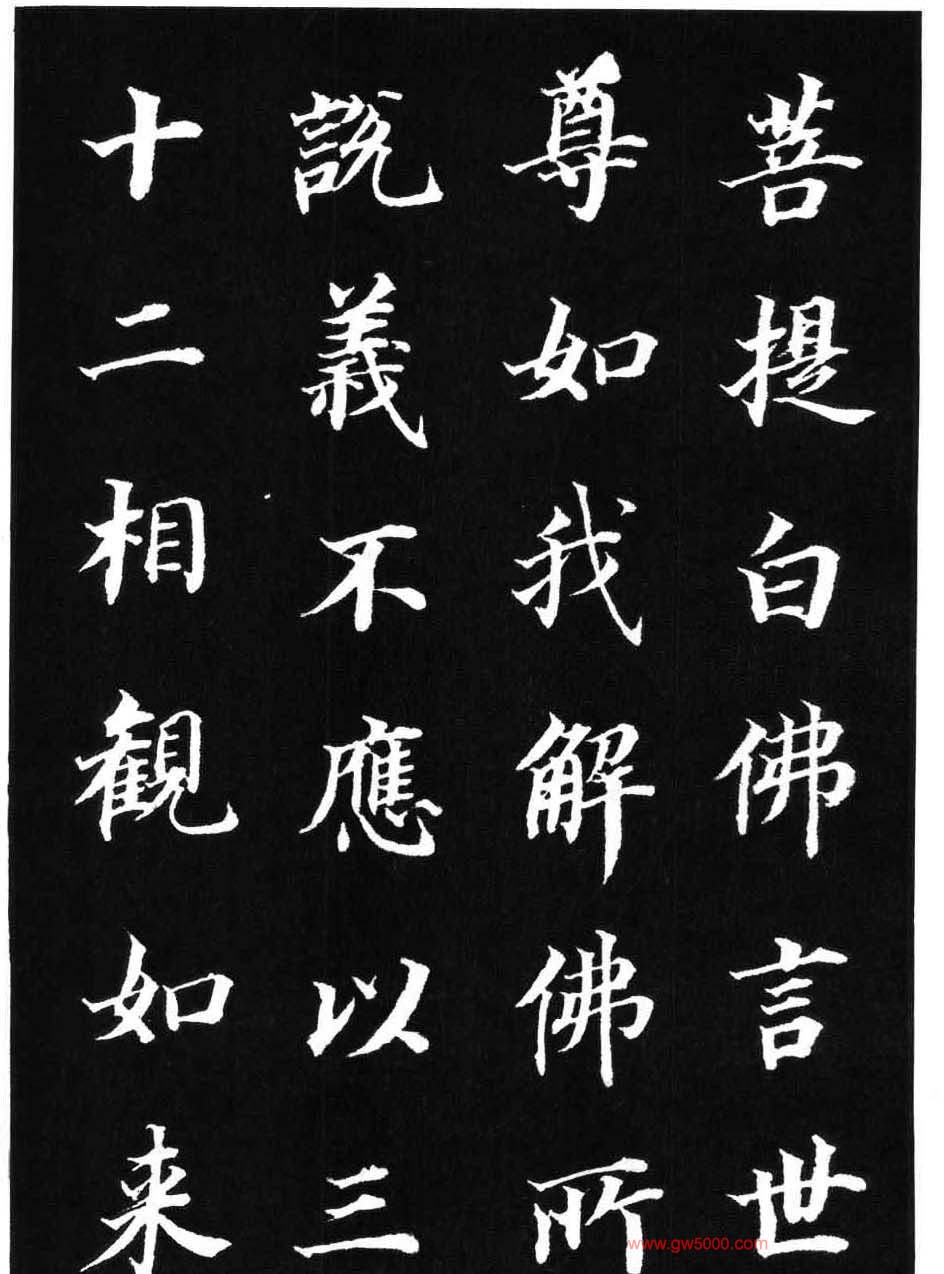 菩提白佛言世
尊如我解佛所
說義不應以三
十二相観如来
www.gw5000.com